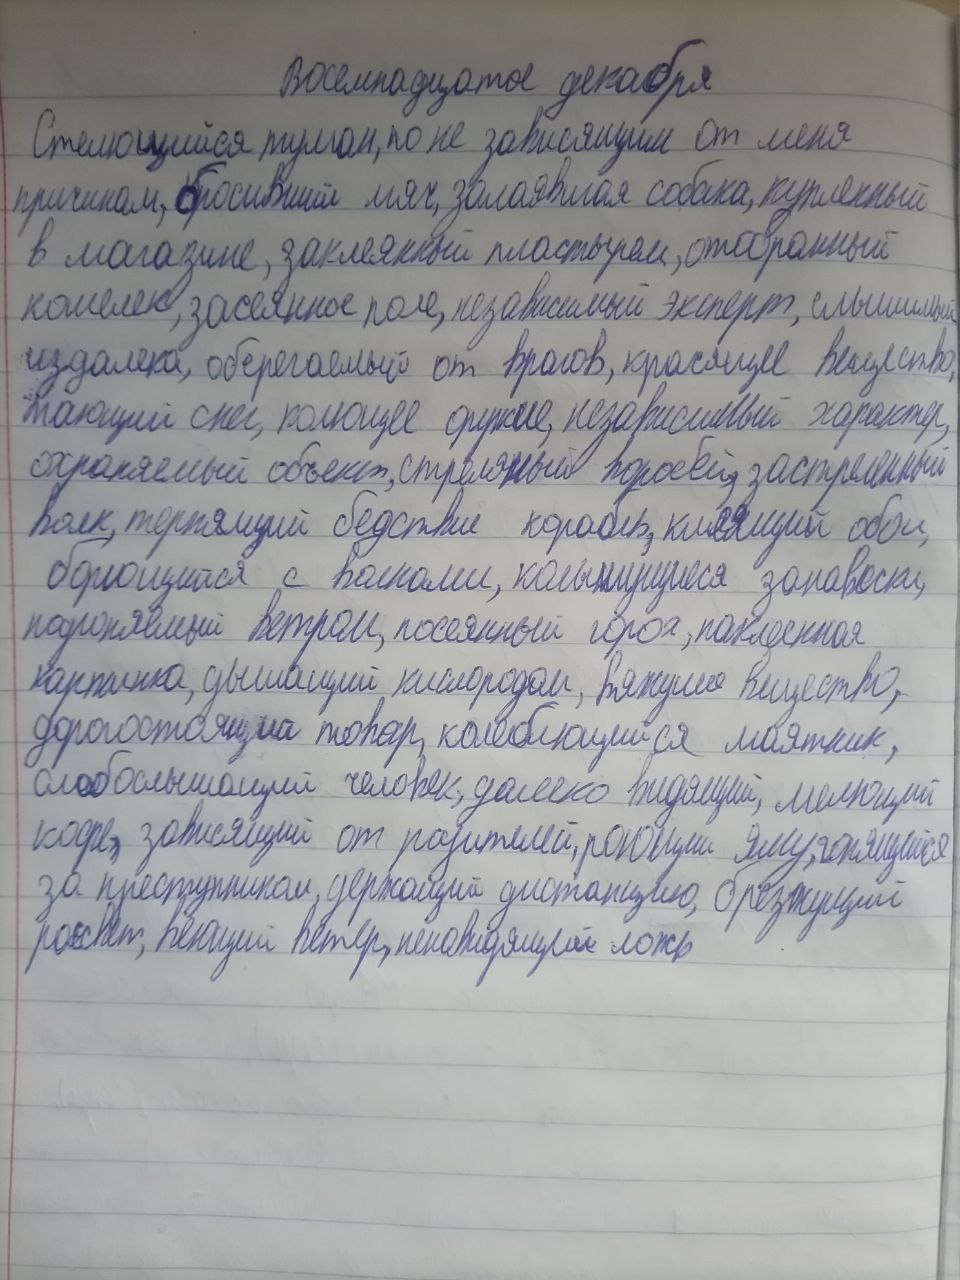 Восемнадцатое декабря
Стелющийся туман, по не зависящим от меня
причинам, бросивший мяч, залаявшая собака, купленный
в магазине, заклеянный пластырем, отобранный
кошелек, засеянное поле, независимый эксперт, слышимый
издалека, оберегаемый от врагов, красящее вещество,
тающий снег, колющее оружие, независимый характер,
охраняемый объект, стреляный воробей, застреленный
волк, терпящий бедствие корабль, клеящий обои,
борющийся с волками, колышущиеся занавески,
подгоняемый ветром, посеянный горох, наклеенная
картинка, дышащий кислородом, вяжущее вещество,
дорогостоящий товар, колеблющийся маятник,
слабослышащий человек, далеко видящий, мелющий
кофе, зависящий от родителей, роющий яму, гонящийся
за преступником, держащий дистанцию, брезжущий
рассвет, веющий ветер, ненавидящий ложь